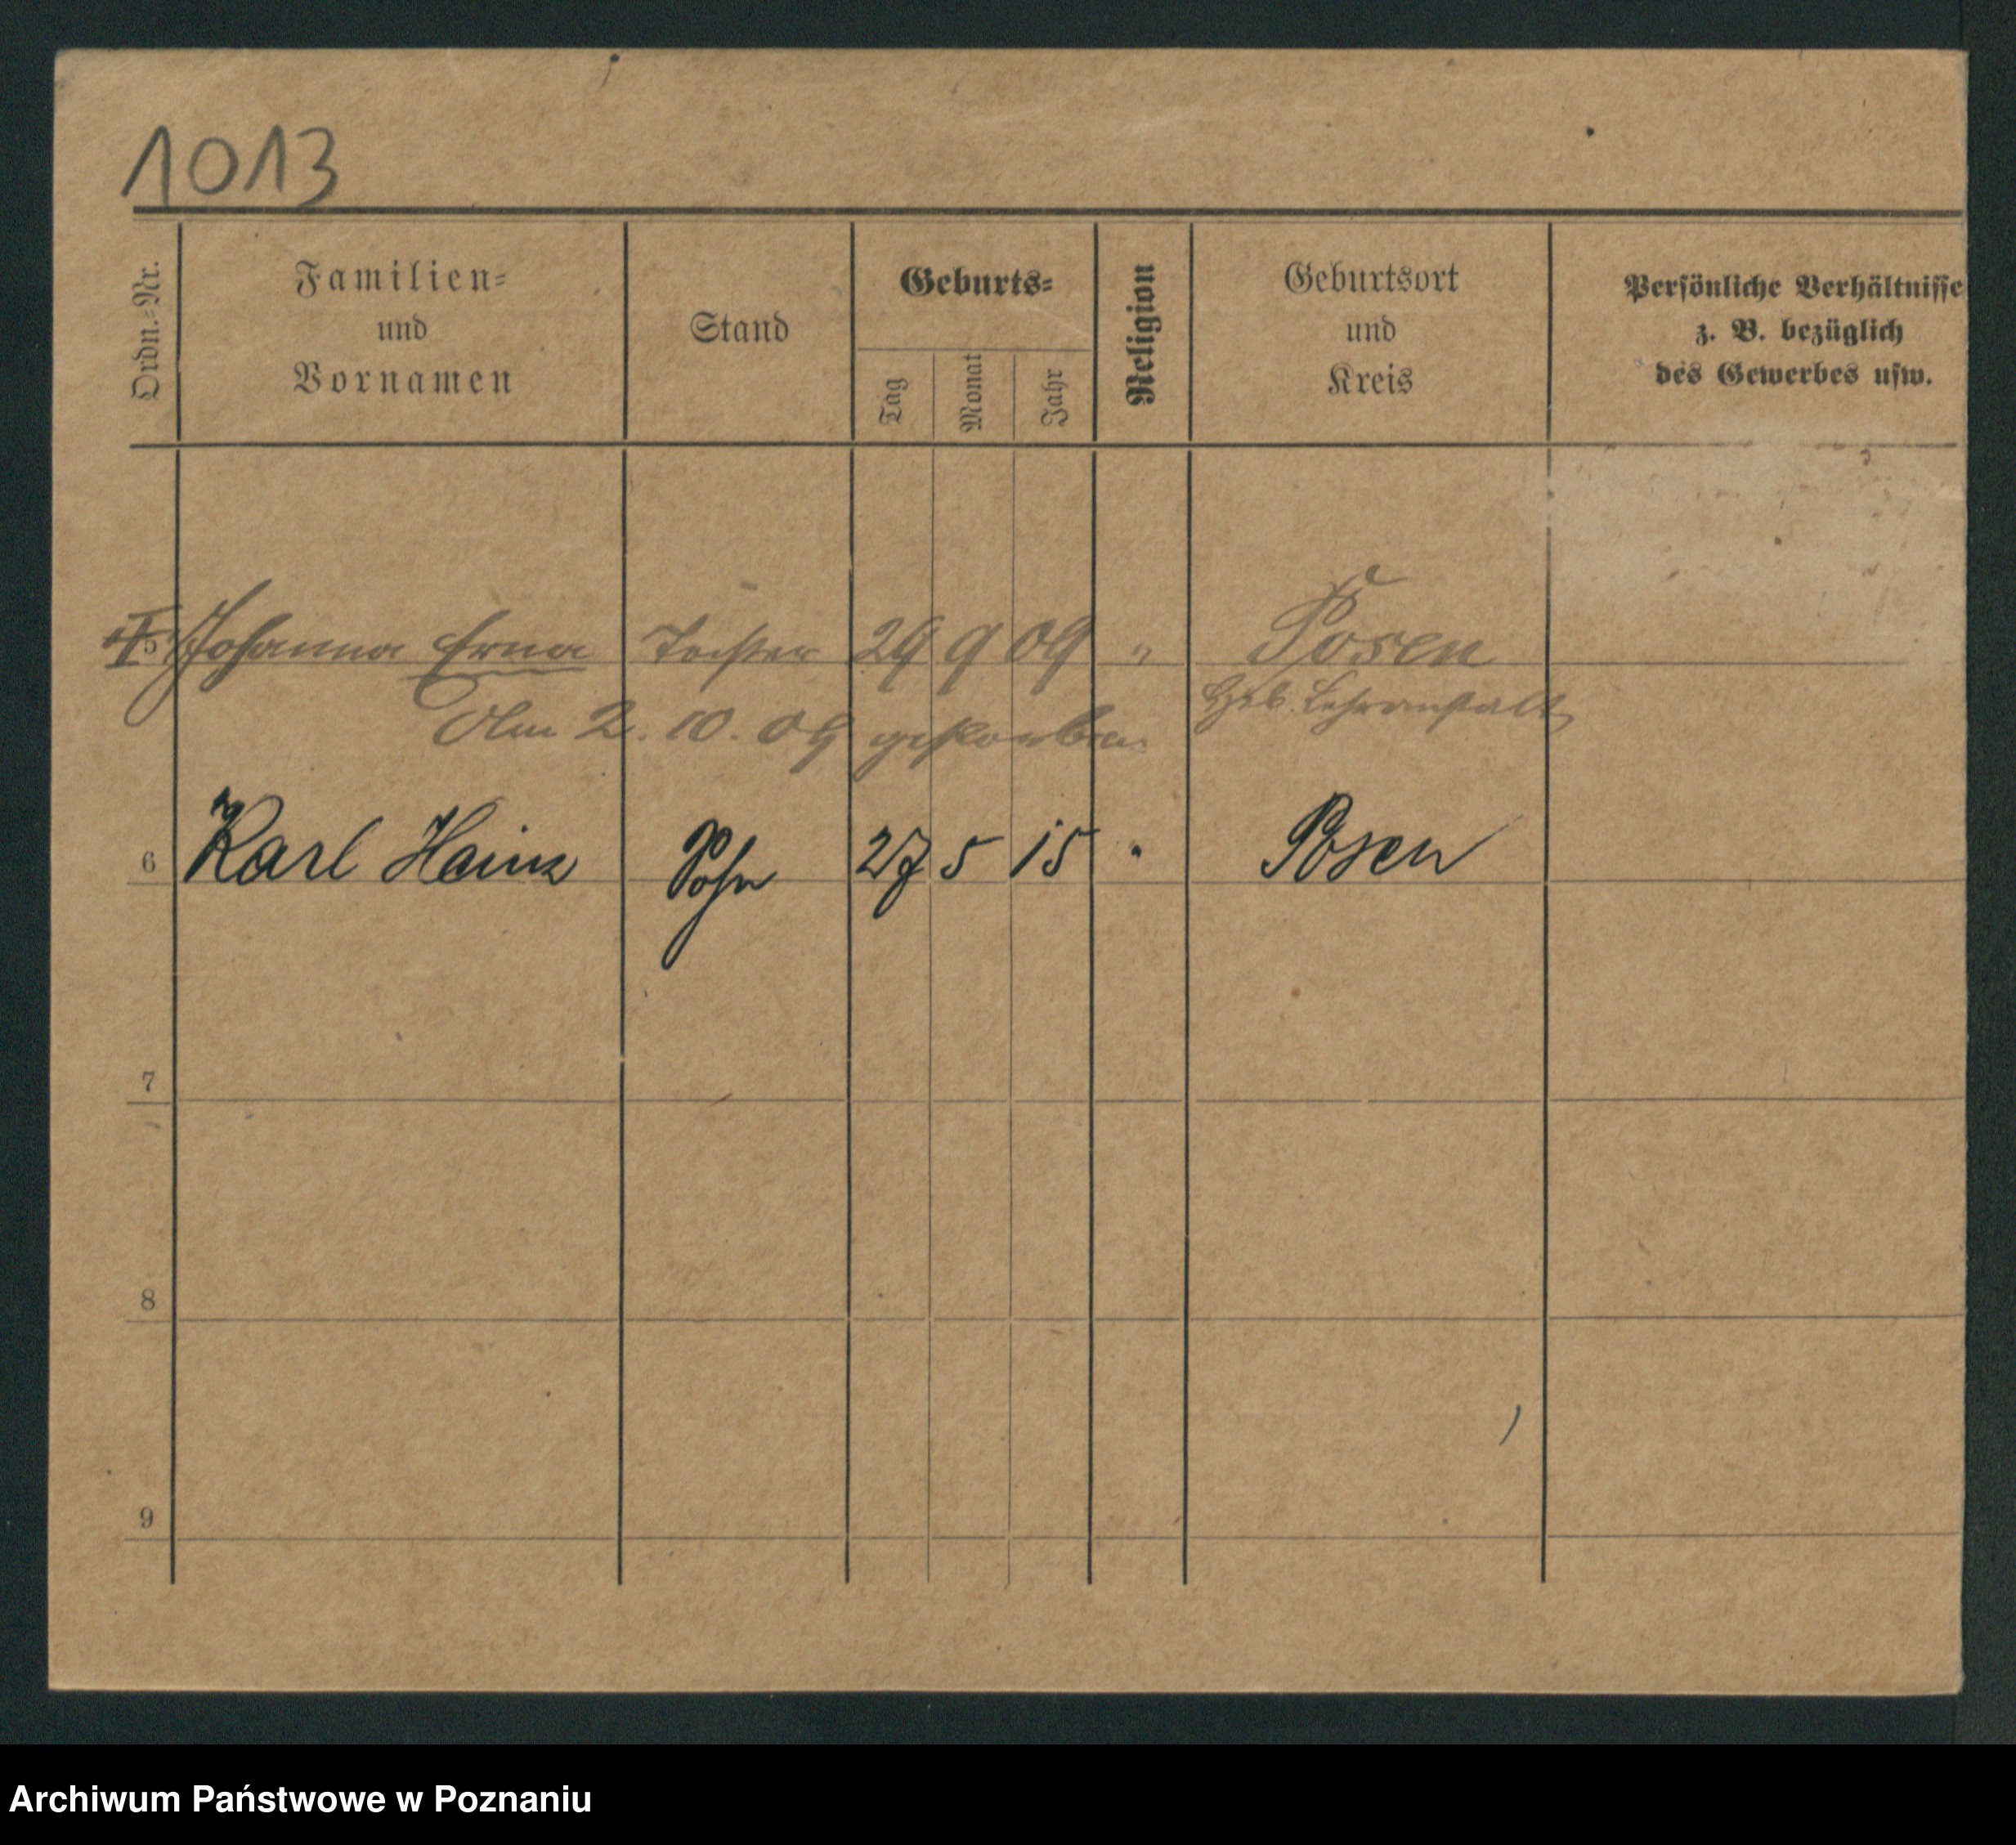 1013
Ordn.-Nr.
Familien-
und
Vornamen
Stand
Geburts-
Tag
Monat
Jahr
Religion
Geburtsort
und
Kreis
Persönliche Verhältnisse
z. B. bezüglich
des Gewerbes usw.
5 Johanna Erna Tochter 29 9 09 " Posen
Heb. Lehranstalt
Am 2. 10. 09 gestorben
6 Karl Heinz Sohn 27 5 15 " Posen
7
8
9
Archiwum Państwowe w Poznaniu